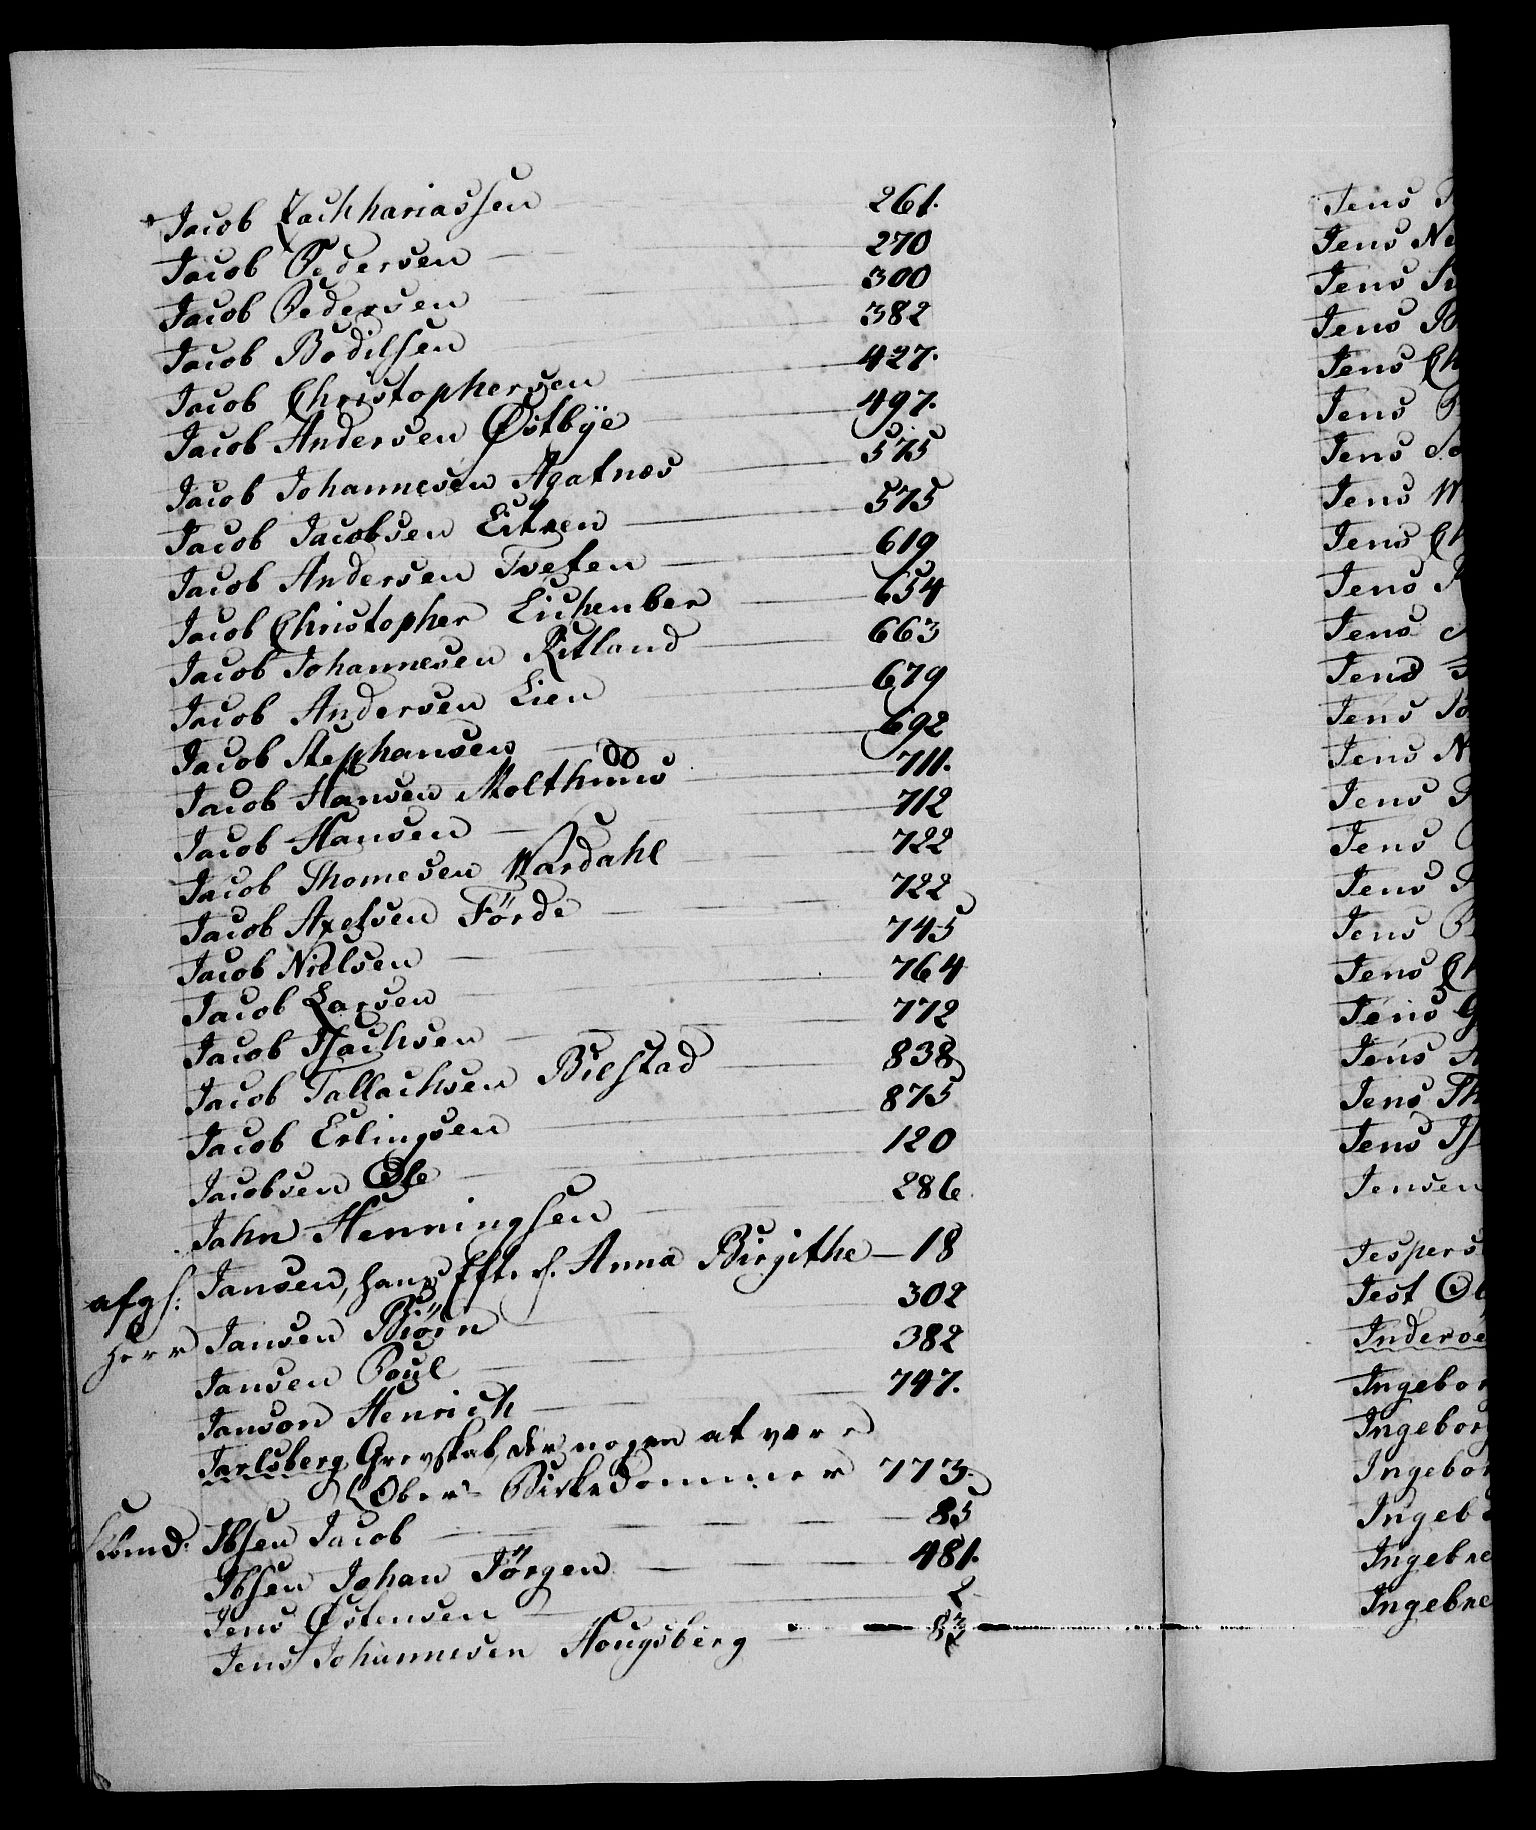 Jacob Zachhariassen 261.
Jacob Pedersen 270
Jacob Pedersen 300
Jacob Bodilsen 382
Jacob Christophersen 427.
Jacob Andersen Østbye 497.
Jacob Johannesen Agatnes 575
Jacob Jacobsen Eitren 575
Jacob Andersen Tveten 619
Jacob Christopher Lichenber 654
Jacob Johannesen Ritland 663
Jacob Andersen Lien 679
Jacob Stephansen 692
Jacob Hansen Molthuus 711.
Jacob Hansen 712
Jacob Thomesen Wardahl 722
Jacob Axelsen Förde 722
Jacob Nielsen 745
Jacob Larsen 764
Jacob Isachsen 772
Jacob Tallachsen Bilstad 838
Jacob Erlingsen 875
Jacobsen Ole 120
Jahn Henningsen 286.
afgl: Jansen, Hans Eft. s. Anna Birgithe 18
Herr Jansen Biörn 302
Jansen Poul 382
Janson Henrich 747.
Jarlsberg Grevskab, der nogen at være
Ober-Birkedommer 773.
Kbmd: Ibsen Jacob 85
Ibsen Johan Jörgen 481.
Jens Østensen 2
Jens Johannesen Hougsberg 83
Jens
Jens Ne
Jens
Jens
Jens Ch
Jens
Jens
Jens
Jens Ch
Jens
Jens
Jens
Jens Jo
Jens N
Jens
Jens
Jens
Jens
Jens Ch
Jens G
Jens
Jens Th
Jens Is
Jensen
Jespers
Jest Ol
Inderøe
Ingebor
Ingeborg
Ingebor
Ingeb
Ingebre
Ingebre